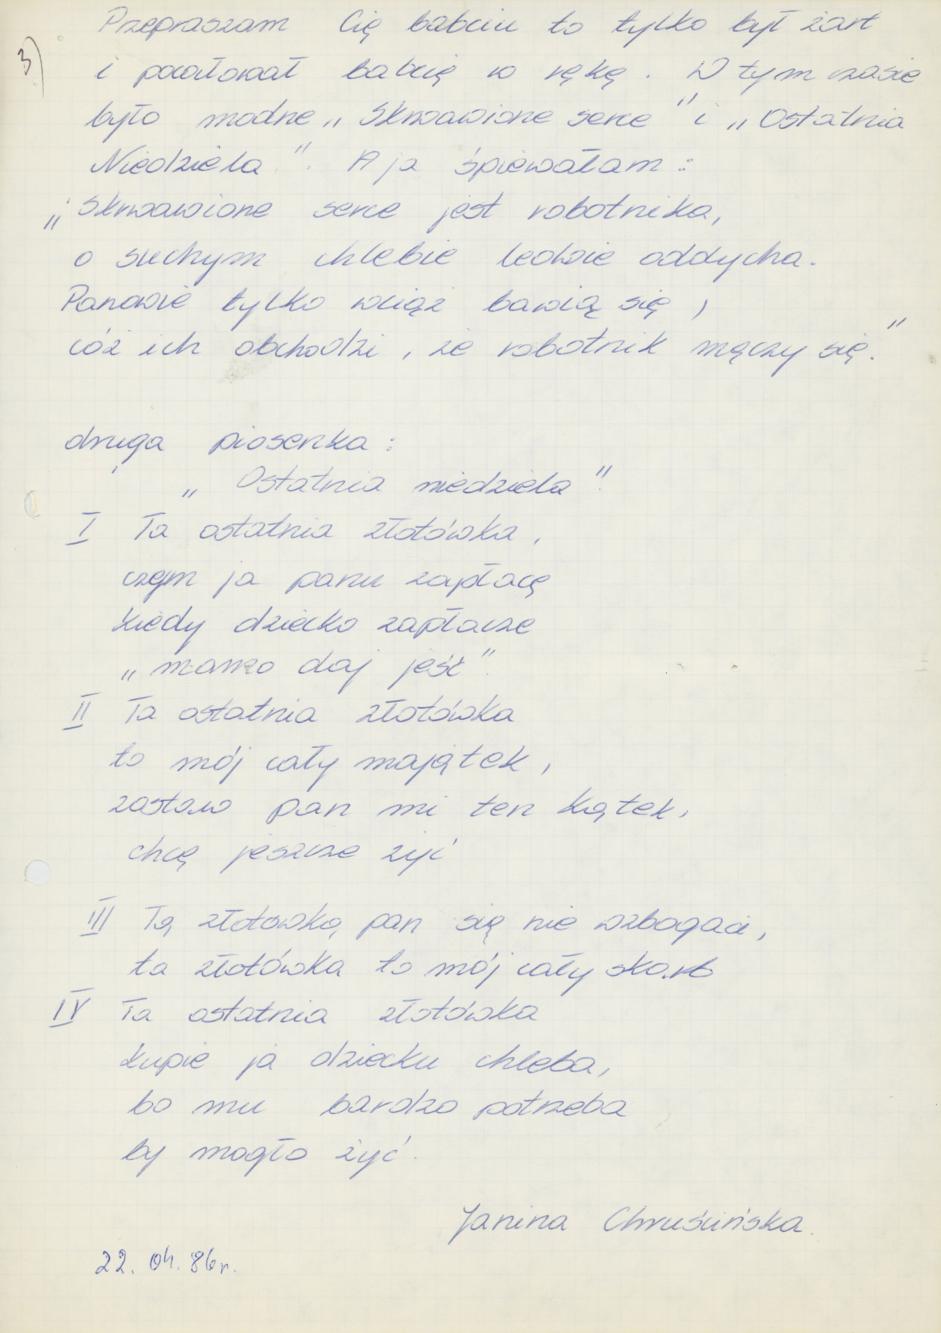 3)
Przepraszam Cię babciu to tylko był żart
i pocałował babcię w rękę. W tym czasie
było modne „Skrwawione serce" i „Ostatnia
Niedziela". A ja śpiewałam:
„Skrwawione serce jest robotnika,
o suchym chlebie ledwie oddycha.
Panowie tylko wciąż bawią się,
cóż ich obchodzi, że robotnik męczy się."
druga piosenka:
„Ostatnia niedziela"
I Ta ostatnia złotówka,
czym ja panu zapłacę
kiedy dziecko zapłacze
„mamo daj jeść"
II Ta ostatnia złotówka
to mój cały majątek,
zostaw pan mi ten kątek,
chcę jeszcze żyć
III Tą złotówką pan się nie wzbogaci,
ta złotówka to mój cały skarb
IV Ta ostatnia złotówka
kupię ja dziecku chleba,
bo mu bardzo potrzeba
by mogło żyć.
Janina Chruścińska.
22. 04. 86r.